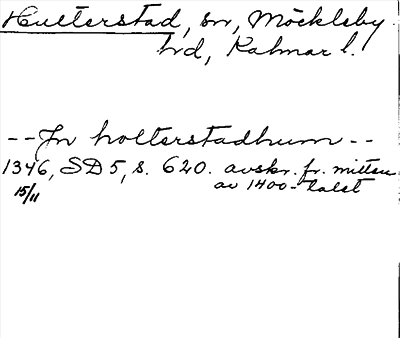 Hulterstad, sn, Möckleby
hd, Kalmar l.
-- Jn holterstadhum --
1346, SD 5, s. 620. avskr. fr. mitten
15/11 av 1400-talet